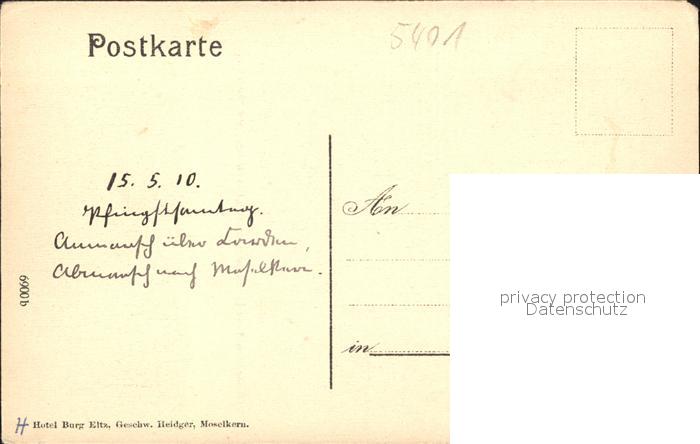 Postkarte
5401
15. 5. 10.
Pfingstsonntag.
Anmarsch über
Abmarsch nach Moselkern.
An
in
q0069
H Hotel Burg Eltz, Geschw. Heidger, Moselkern.
privacy protection
Datenschutz